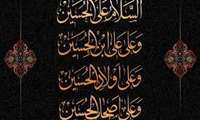 السلام على الحسين
وعلى علي ابن الحسين
وعلى أولاد الحسين
وعلى أصحاب الحسين